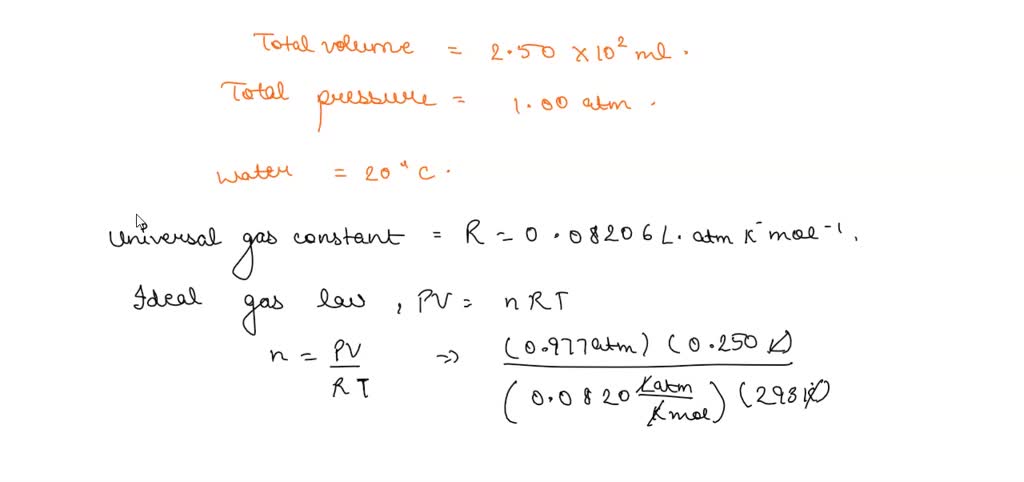 Total volume = 2.50 × 10² ml.
Total pressure = 1.00 atm.
water = 20°C.
Universal gas constant = R = 0.08206 L. atm K⁻ mol⁻¹,
Ideal gas law, PV = nRT
n = PV/RT => (0.977 atm) (0.250 L) / (0.0820 L atm/K mol) (298 K)